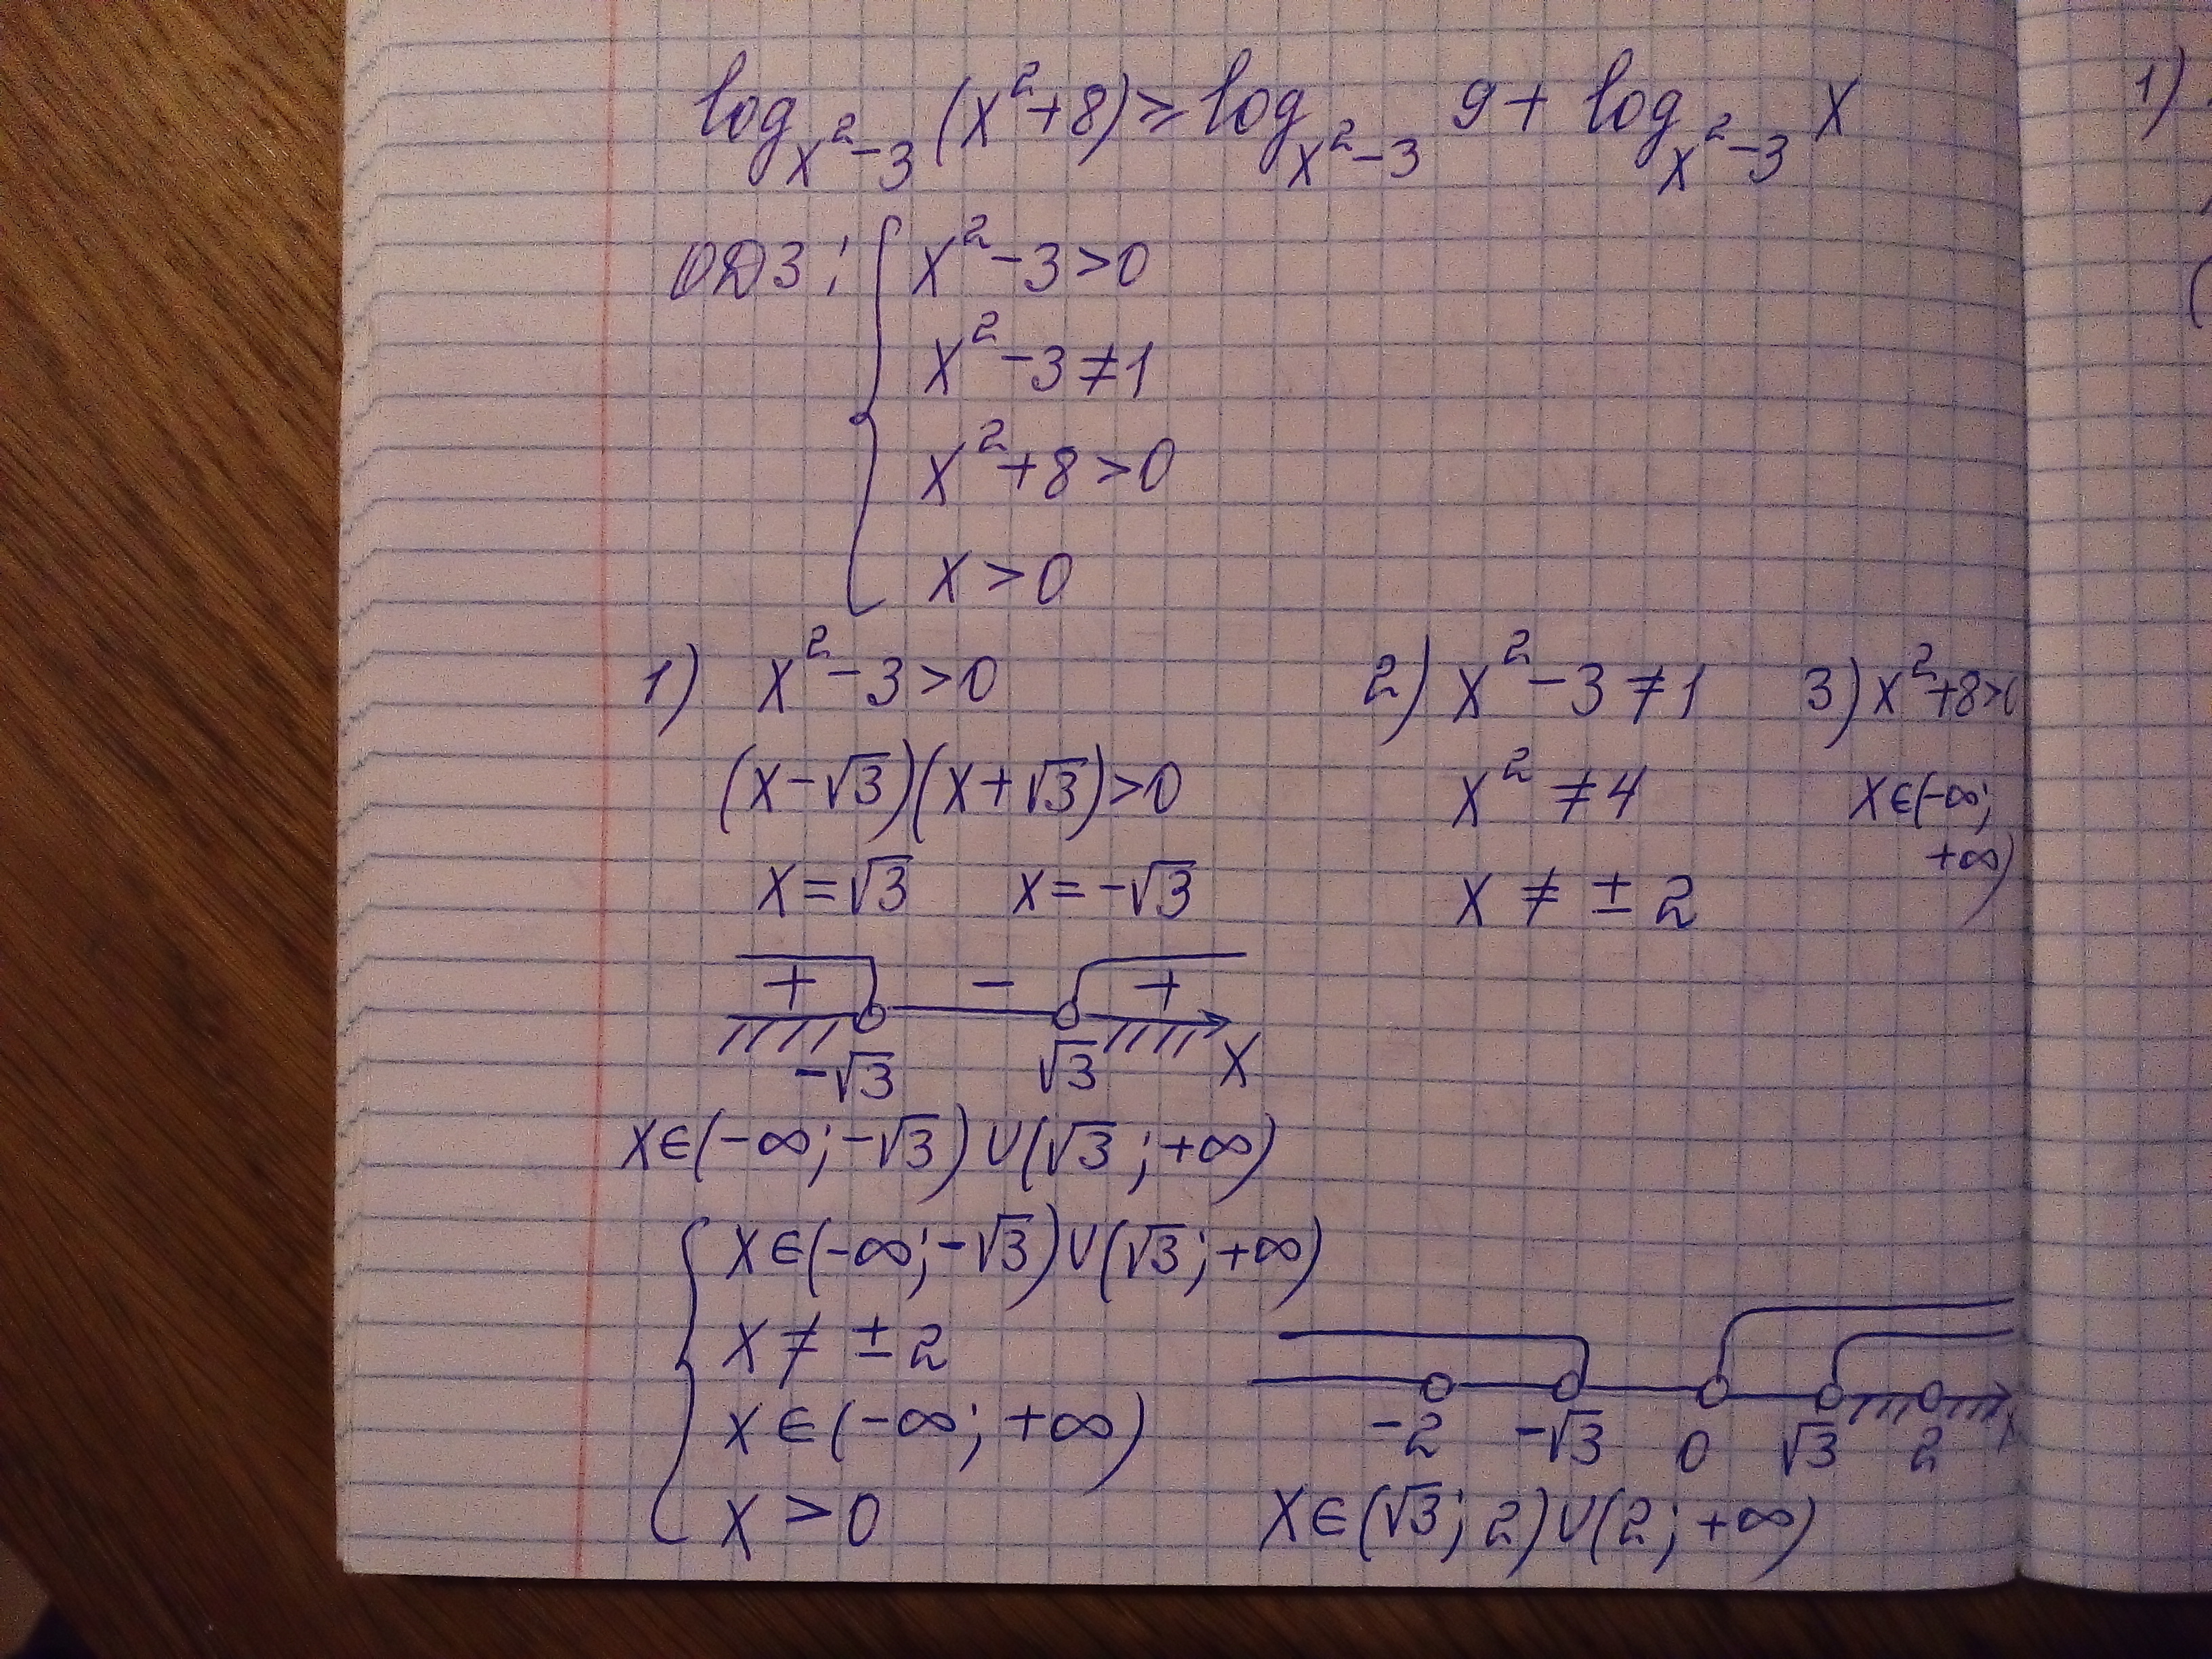 log_{x²-3} (x²+8) ≥ log_{x²-3} 9 + log_{x²-3} x
ОДЗ: { x²-3>0
x²-3≠1
x²+8>0
x>0
1) x²-3>0
(x-√3)(x+√3)>0
x=√3 x=-√3
+ - +
-√3 √3 x
x∈(-∞;-√3)∪(√3;+∞)
2) x²-3≠1
x²≠4
x≠±2
3) x²+8>0
x∈(-∞;
+∞)
{ x∈(-∞;-√3)∪(√3;+∞)
x≠±2
x∈(-∞;+∞)
x>0
-2 -√3 0 √3 2 x
x∈(√3;2)∪(2;+∞)
1)
(